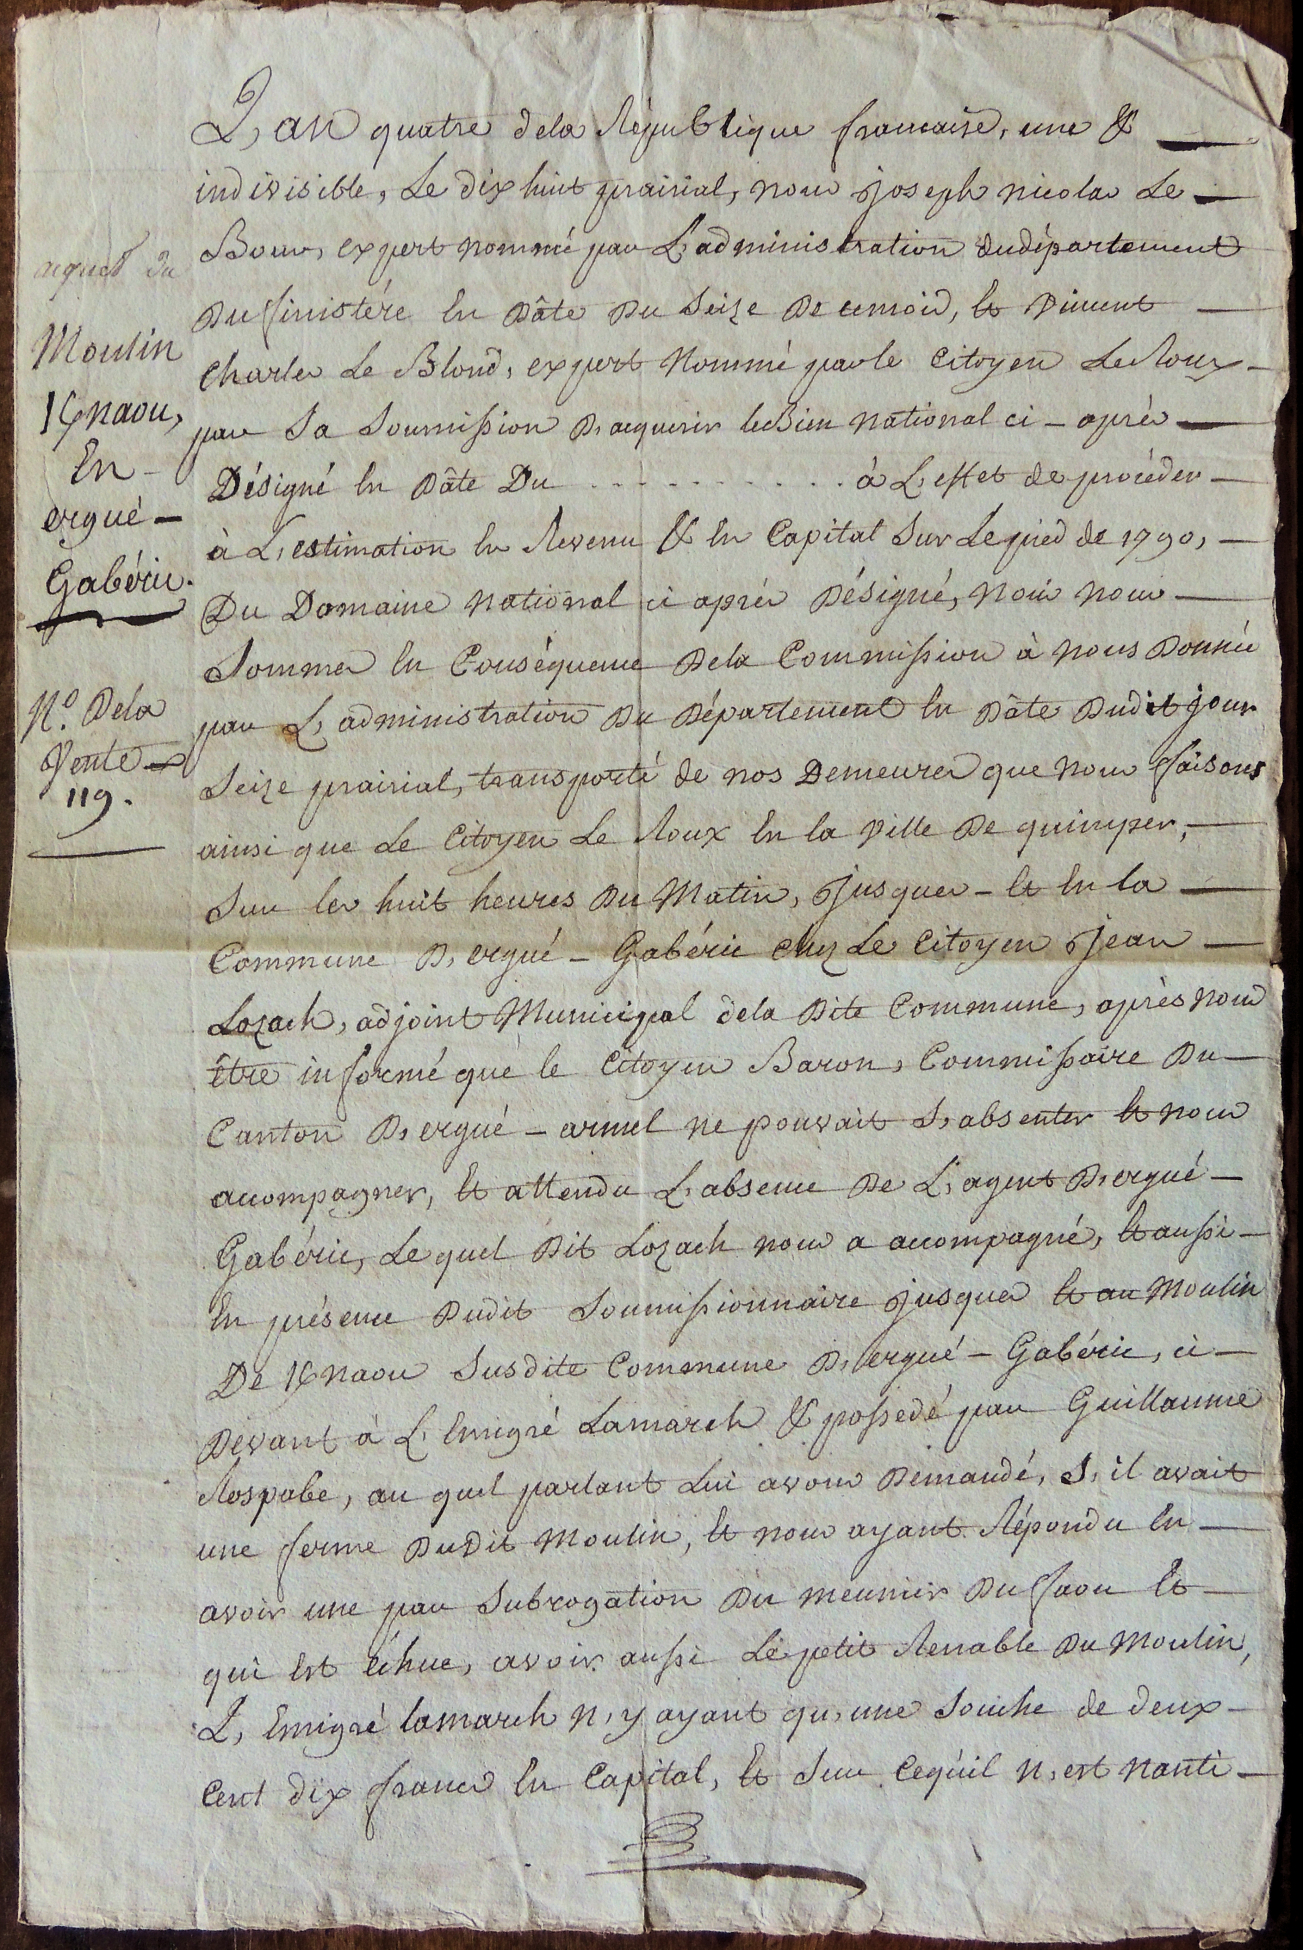 L'an quatre dela République francaise, une &
indivisible, Le dix huit prairial, nous joseph nicolas Le
Bour, expert nommé par L'administration dudépartement
Du finistére En Dâte Du Seize De cemois, Et Vincent
Charles Le Blond, expert Nommé parle Citoyen Le Roux
par Sa Soumission D'acquerir leBien national ci - après
Désigné En Dâte Du . . . . . . . . . . . à L'effet de procéder
à L'estimation En Revenu & En Capital Sur Lepied de 1790,
Du Domaine national ci après Désigné, Nous nous
Sommes En Conséquence Dela Commission à nous Donnée
par L'administration Du Département En Dâte Dudit jour
Seize prairial, transporté de nos Demeures que nous faisons
ainsi que Le Citoyen Le Roux En la Ville De quimper,
Sur les huit heures Du Matin, Jusques - Et En la
Commune D'ergué - Gabéric chez Le Citoyen Jean
Lozach, adjoint Municipal dela Dite Commune, après nous
être informé que le Citoyen Baron, Commissaire Du
Canton D'ergué - armel ne pouvait S'absenter Et nous
accompagner, Et attendu L'absence De L'agent D'ergué -
Gabéric, Le quel Dit Lozach nous a accompagné, Et aussi
En présence Dudit Soumissionnaire jusques Et au Moulin
De Kxnaou Susdite Commune D'ergué - Gabéric, ci -
Devant à L'Emigré Lamarch & possedé par Guillaume
Rospabe, au quel parlant Lui avons Demandé, S'il avait
une ferme Dudit Moulin, Et nous ayant Répondu En
avoir une par Subrogation Du meunier Du faou Et
qui Est Echue, avoir aussi Le petit Renable Du Moulin,
L'Emigré lamarch n'y ayant qu'une Souche de deux
Cent dix francs En Capital, Et Sur Cequ'il n'est nanti

acquet du
Moulin
Kxnaou,
En
ergué -
Gabéric.
N.º Dela
Vente
119.